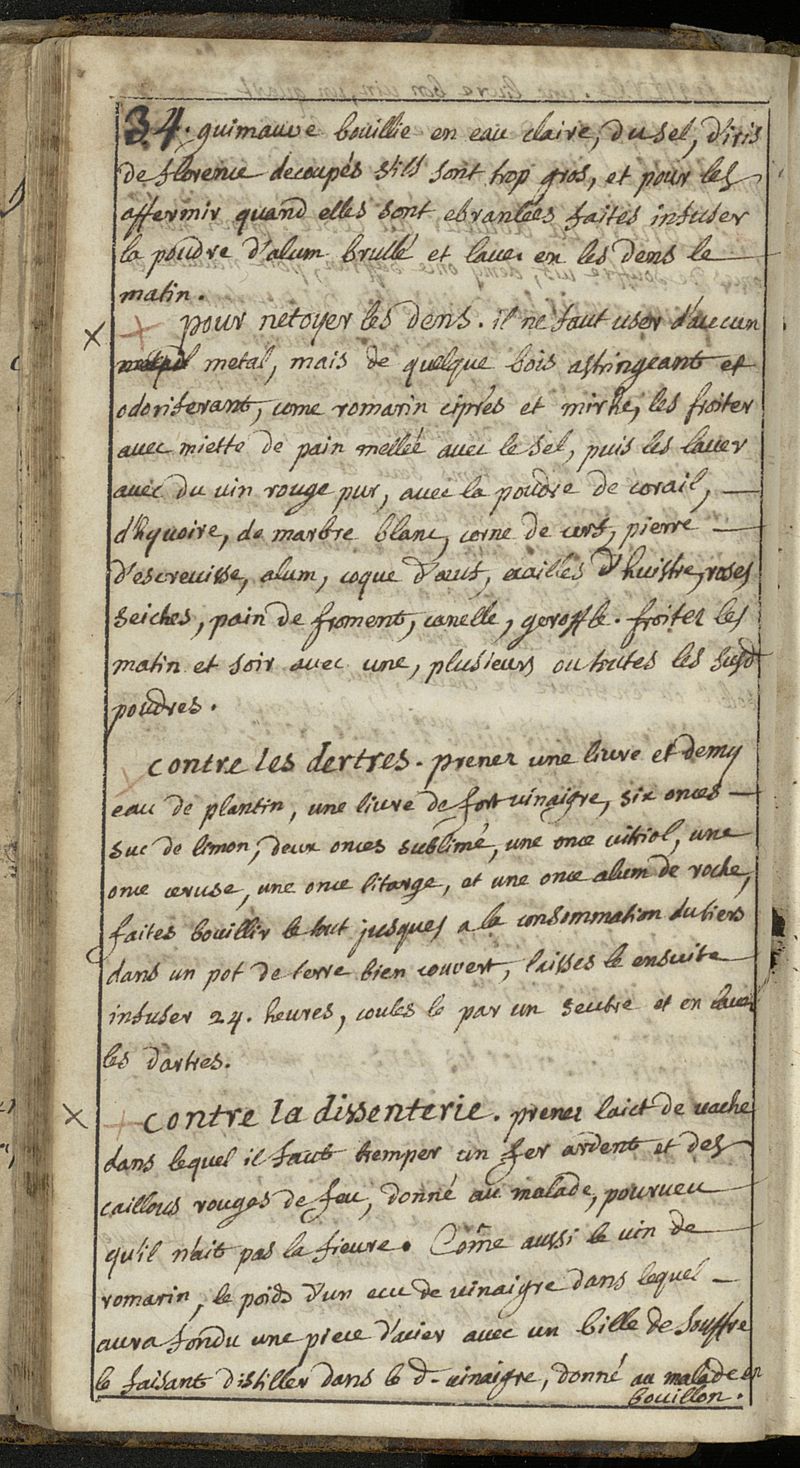 34. guimauve bouillie en eau claire, du sel, d'iris
de florence decoupés s'ils sont trop gros, et pour les
affermir quand elles sont ebranlées faites infuser
la poudre d'alum brullé et lavez en les dens le
matin.
pour netoyer les dens. il ne faut user d'aucun
metal, mais de quelque bois astringeant et
odoriferant, come romarin ciprés et mirhe, les froiter
avec miette de pain mellée avec le sel, puis les laver
avec du vin rouge pur, avec la poudre de corail,
d'hyvoire, de marbre blanc, corne de cerf, pierre
d'escrevisse, alum, coque d'œuf, écailles d'huistre, roses
seiches, pain de froment, canelle, geroffle. froitez les
matin et soir avec une, plusieurs ou toutes les susd
poudres.
contre les dertres. prenez une livre et demy
eau de plantin, une livre de fort vinaigre, six onces
suc de limon, deux onces sublimé, une once vitriol, une
once ceruse, une once litarge, et une once alum de roche,
faites bouillir le tout jusques a la consommation du tiers
dans un pot de terre bien couvert, laisses le ensuite
infuser 24. heures, coules le par un feutre et en lavez
les dartres.
contre la dissenterie. prenez laict de vache
dans lequel il faut tremper un fer ardent et des
caillous rouges de feu, donné au malade, pourveu
qu'il n'ait pas la fievre. Come aussi le vin de
romarin, le poids d'un ecu de vinaigre dans lequel
aura fondu une piece d'acier avec un bille de souffre
le faisant distiller dans le d. vinaigre, donné au malade en
bouillon.